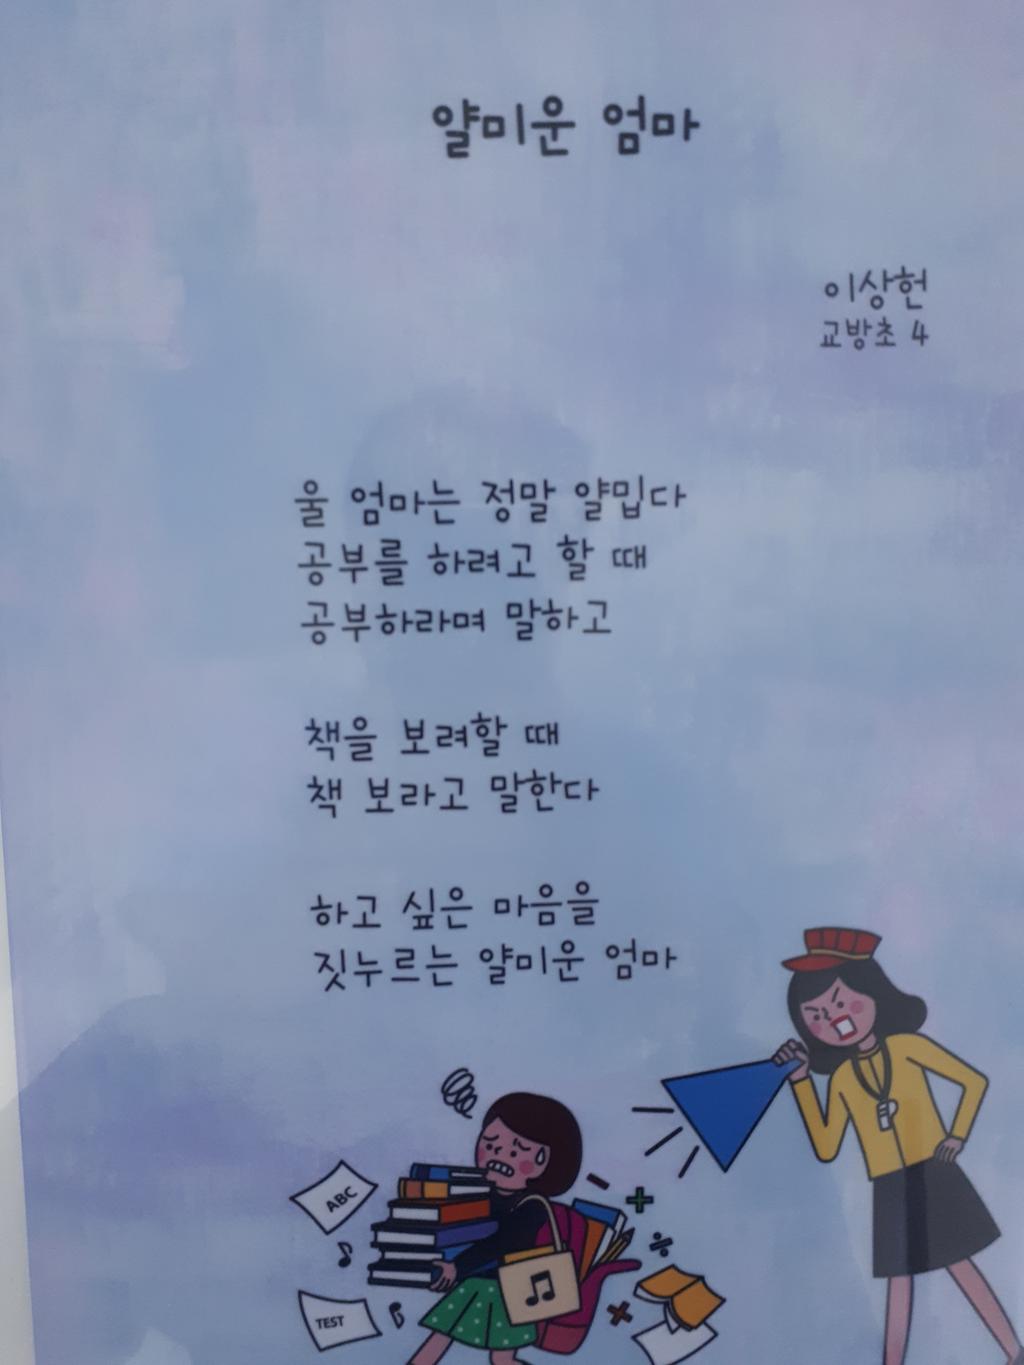 얄미운 엄마
이상헌
교방초 4
울 엄마는 정말 얄밉다
공부를 하려고 할 때
공부하라며 말하고
책을 보려할 때
책 보라고 말한다
하고 싶은 마음을
짓누르는 얄미운 엄마
ABC
TEST